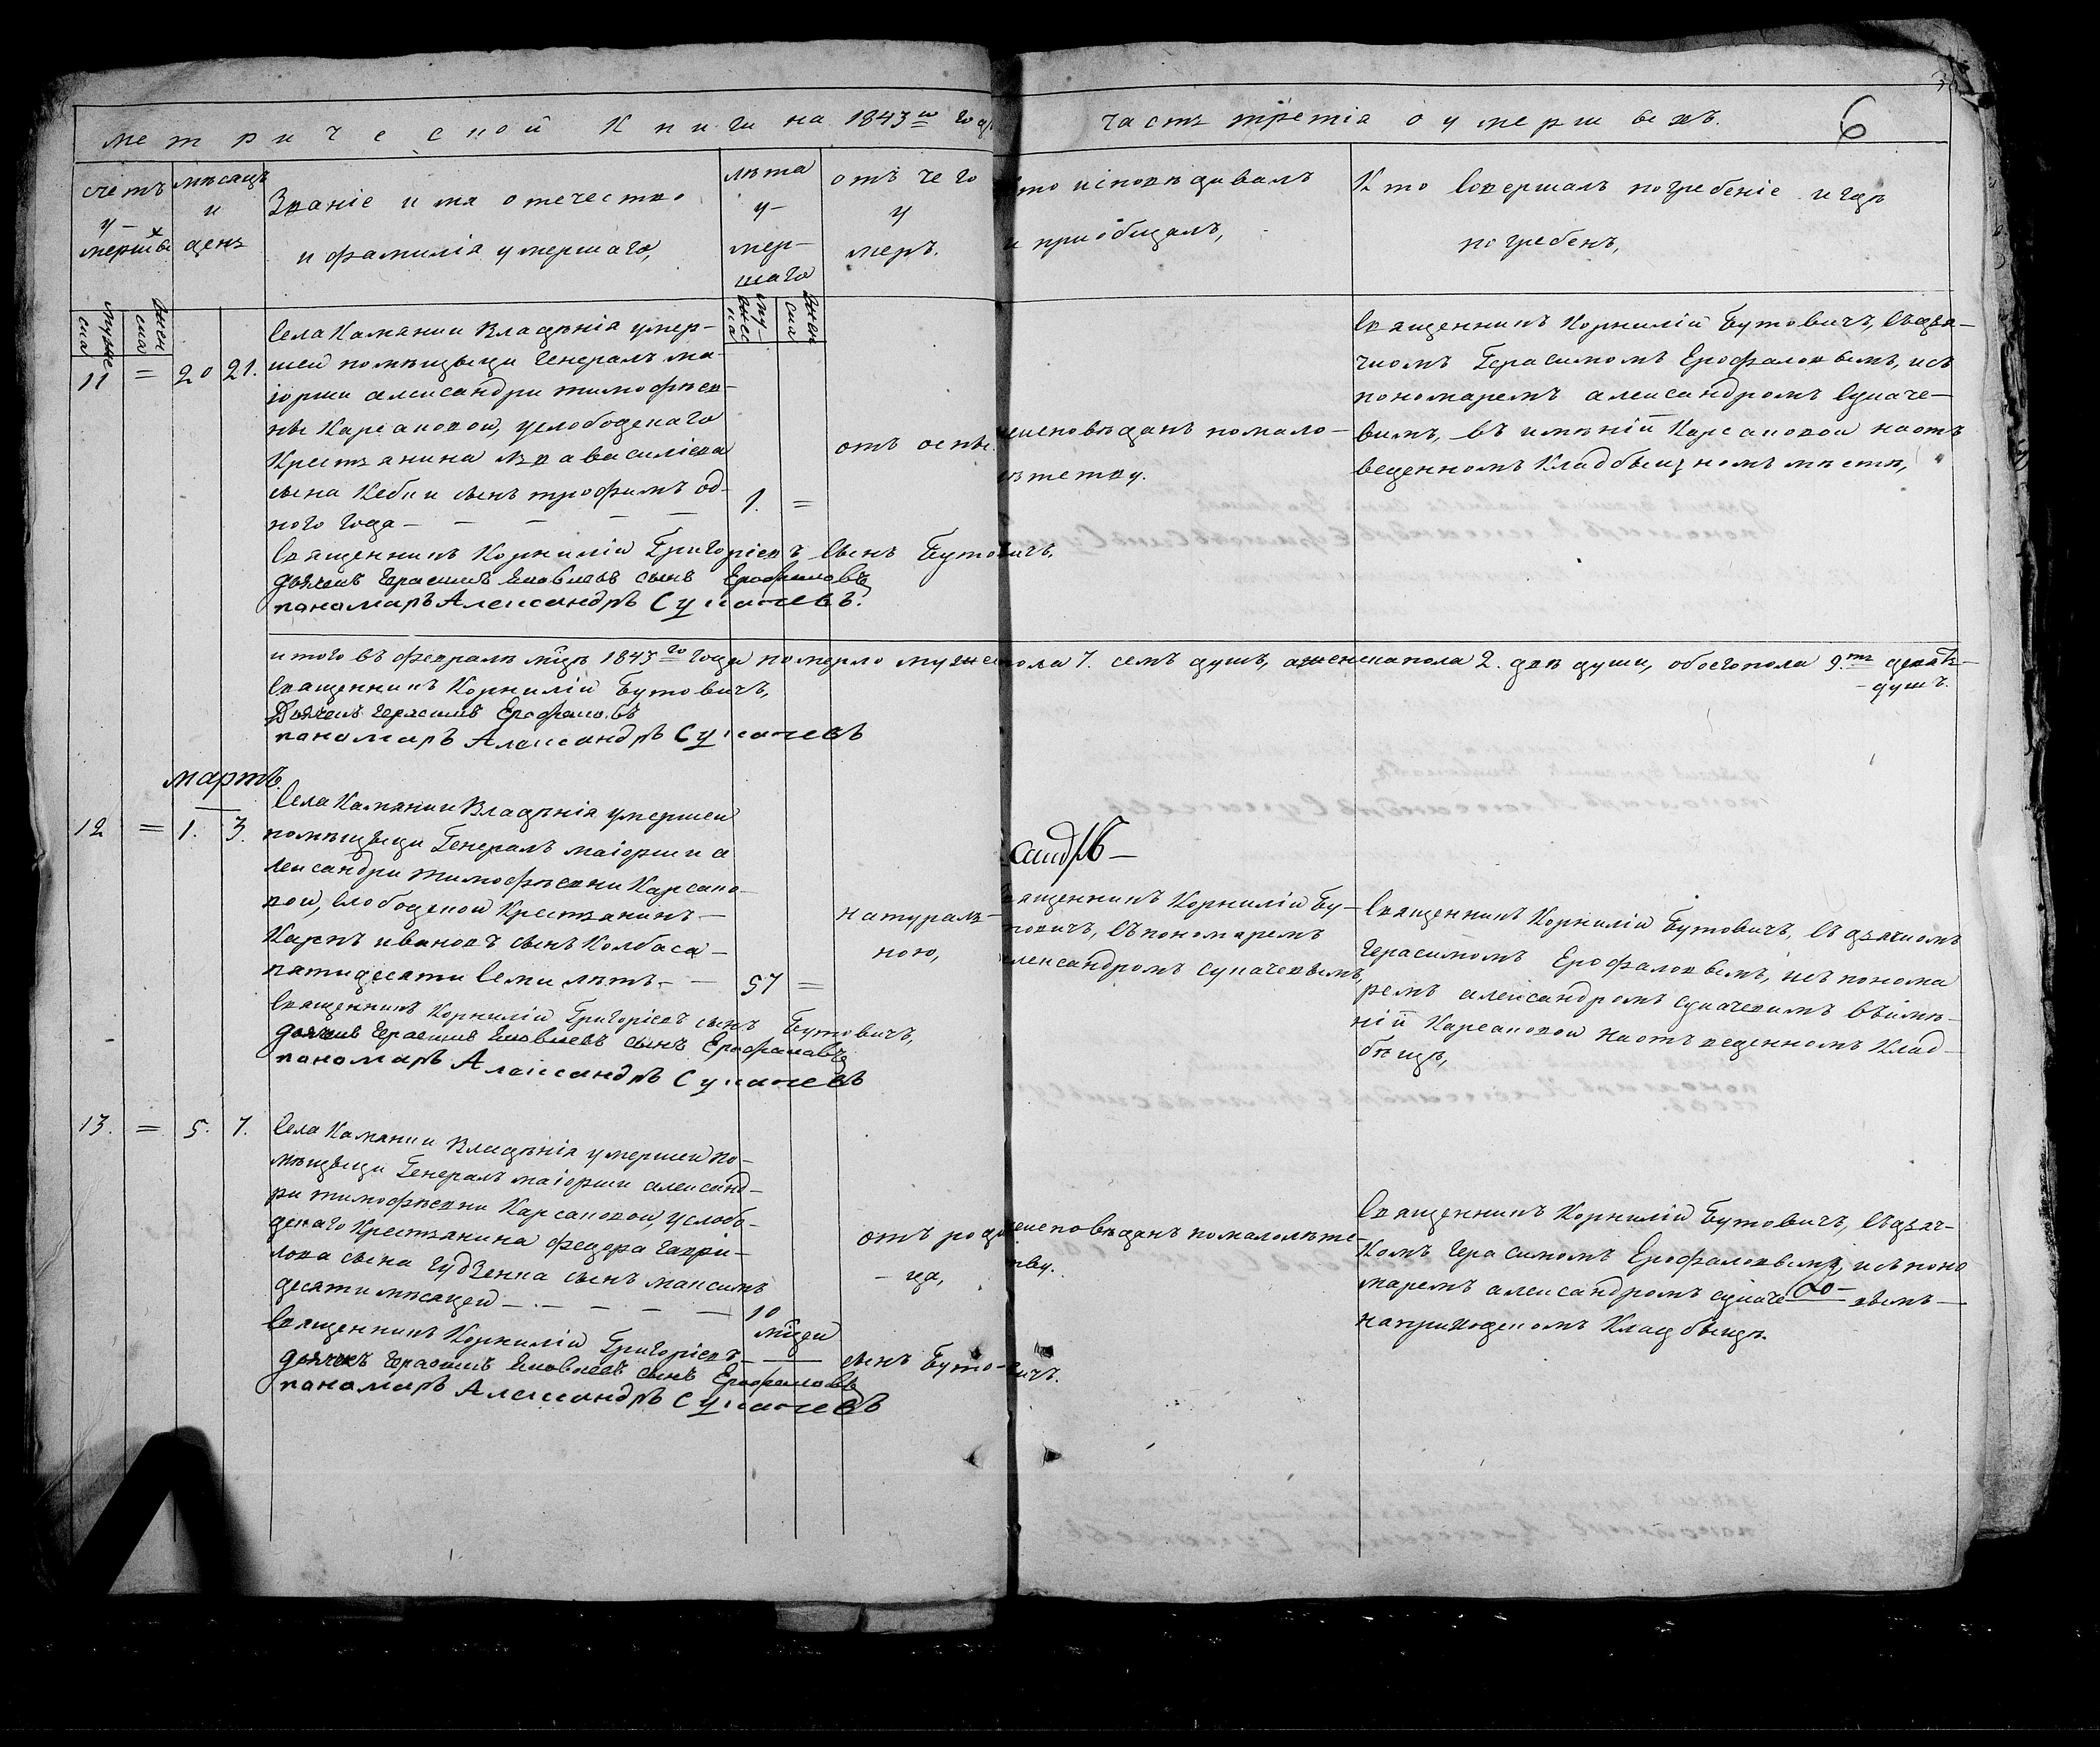 метрической книги на 1843й годъ
часть третія о умершихъ.
6
счетъ умершихъ
мужеска
женска
мѣсяцъ и день
Званіе имя отечество
и фамиліа умершаго,
лѣта умершаго
мужеска
женска
отъ чего умеръ.
кто исповѣдивалъ
и пріобщалъ,
Кто совершалъ погребеніе и гдѣ
погребенъ,
11 = 20 21.
села Камянки Владѣнія умер-
шей помѣщыци Генералъ ма-
іорши александри тимофѣев-
ны Карсаковой, услободскаго
Крестьянина сына трофимъ од-
ного года — — — — —
1. =
отъ оспы.
неисповѣданъ помало-
лѣтству.
священникъ Корнилій Бутовичъ, съдья-
чкомъ Герасимомъ Ерофаловымъ, исъ
пономаремъ александромъ Сукаче-
вымъ, въ имѣніи Карсаковой наотъ
веденномъ Кладбыщномъ мѣстѣ,
священникъ Корнилій Григоріевъ сынъ Бутовичъ.
дьячекъ Герасимъ Яковлевъ сынъ Ерофаловъ
паномаръ Александръ Сукачевъ.
итого въ февралѣ мцѣ 1843го года померло мужескапола 7. семъ душъ, аженскапола 2. двѣ души, обоегопола 9.ть девять
душъ.
священникъ Корнилій Бутовичъ,
Дьячекъ Герасимъ Ерофаловъ
паномаръ Александръ Сукачевъ
мартъ.
12 = 1. 3.
села Камянки Владѣнія умершей
помѣщыци Генералъ маіорши а
лександри тимофѣевни Карсако-
вой, слободской Крестьянинъ —
Карпъ ивановъ сынъ Колбаса —
пятидесяти семи лѣтъ — —
57 =
натураль-
ною,
сандръ —
священникъ Корнилій Бу-
товичъ, съпономаремъ
александромъ сукачевымъ,
священникъ Корнилій Бутовичъ, съдьячкомъ
Герасимомъ Ерофаловымъ, исъ понома
ремъ александромъ сукачевимъ въимѣ-
ніи Карсаковой наотъведенномъ Клад-
быщѣ,
священникъ Корнилій Григоріевъ сынъ Бутовичъ,
дьячекъ Герасимъ Яковлевъ сынъ Ерофаловъ
паномаръ Александръ Сукачевъ
13. = 5. 7.
села Камянки Владѣнія умершей по-
мѣщыци Генералъ маіорши александ-
ри тимофѣевни Карсаковой, услобо-
дскаго Крестьянина федора Гаври-
лова сына Гудзенка сынъ максимъ
десяти мѣсяцей — — — — —
10
мцей
отъ роди
— ца,
неисповѣданъ помалолѣте-
тву.
священникъ Корнилій Бутовичъ, съдьяч-
комъ Герасимомъ Ерофаловымъ, исъ поно
маремъ александромъ сукаче — вымъ —
наприходскомъ Кладбыщѣ.
священникъ Корнилій Григоріевъ — сынъ Буто-вичъ.
дьячекъ Герасимъ Яковлевъ сынъ Ерофаловъ
паномаръ Александръ Сукачевъ